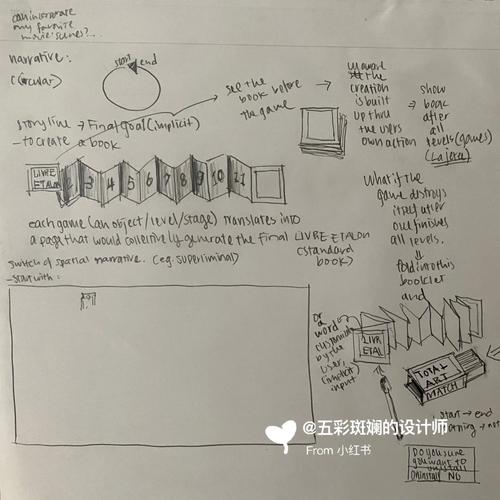 can incorporate
my favorite
movie scenes?...
narrative:
circular)
start end
see the
book before
the game
storyline → Final goal (implicit)
- to create a book
unaware
the
creation
is built
up thru
the users
own action
show
book
after
all
levels (games)
LIVRE
ETALON
2 3 4 5 6 7 8 9 10 11
What if the
game destroys
itself after
one finishes
all levels.
fold into this
booklet
and
each game (an object/level/stage) translates into
a page that would collectively generate the final LIVRE ETALON
(standard
book)
switch of spatial narrative. (eg. superliminal)
- start with:
Or
a
word
customized
by the
user,
implicit
input
LIVRE
ETAL
TOTAL
ART
MATCH
start → end
Do you sure
you want to
uninstall
uninstall NO
@五彩斑斓的设计师
From 小红书